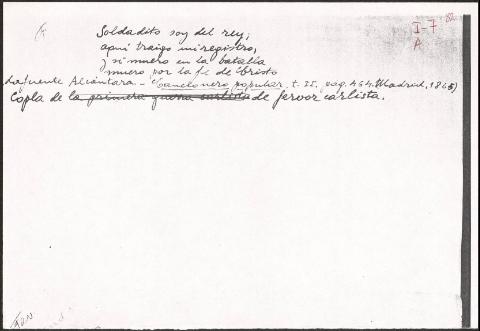 Soldadito soy del rey;
aquí traigo mi registro,
y si muero en la batalla
muero por la fe de Cristo
Lafuente Alcántara - Cancionero popular. t. II. pag. 454. Madrid, 1865)
Copla de la primera guerra carlista de fervor carlista.
I-7
A